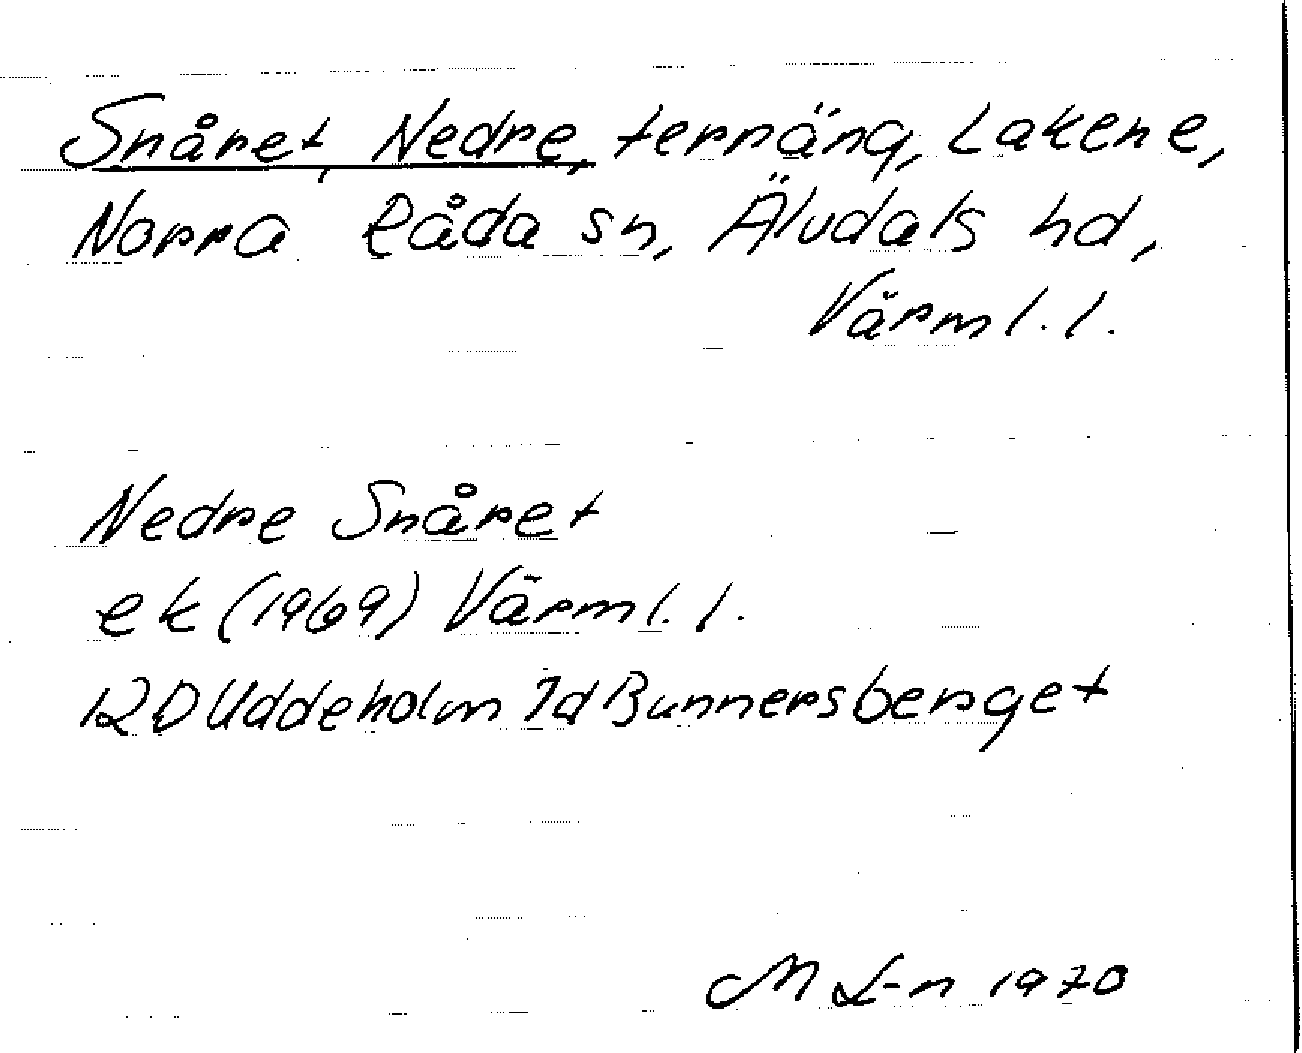 Snåret, Nedre, terräng, Lakene,
Norra Råda sn, Älvdals hd,
Värml. l.
Nedre Snåret
ek (1969) Värml. l.
12D Uddeholm 7d Bunnersberget
M L-n 1970